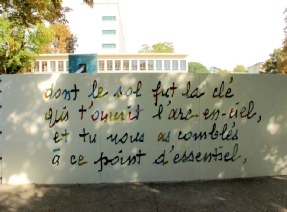 dont le sol fut la clé
qui t'ouvrit l'arc-en-ciel,
et tu nous as comblés
à ce point d'essentiel,